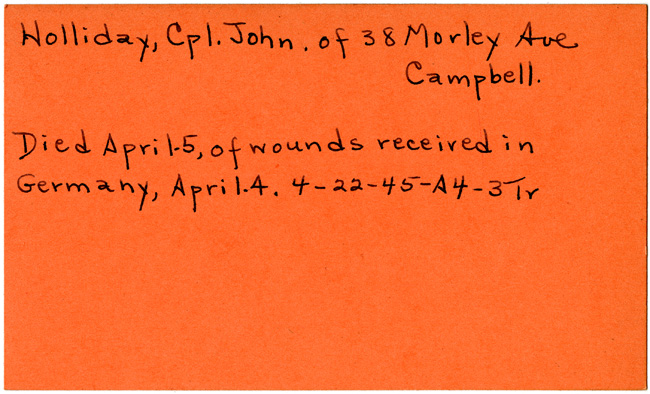 Holliday, Cpl. John. of 38 Morley Ave
Campbell.
Died April-5, of wounds received in
Germany, April-4. 4-22-45-A4-3Tr